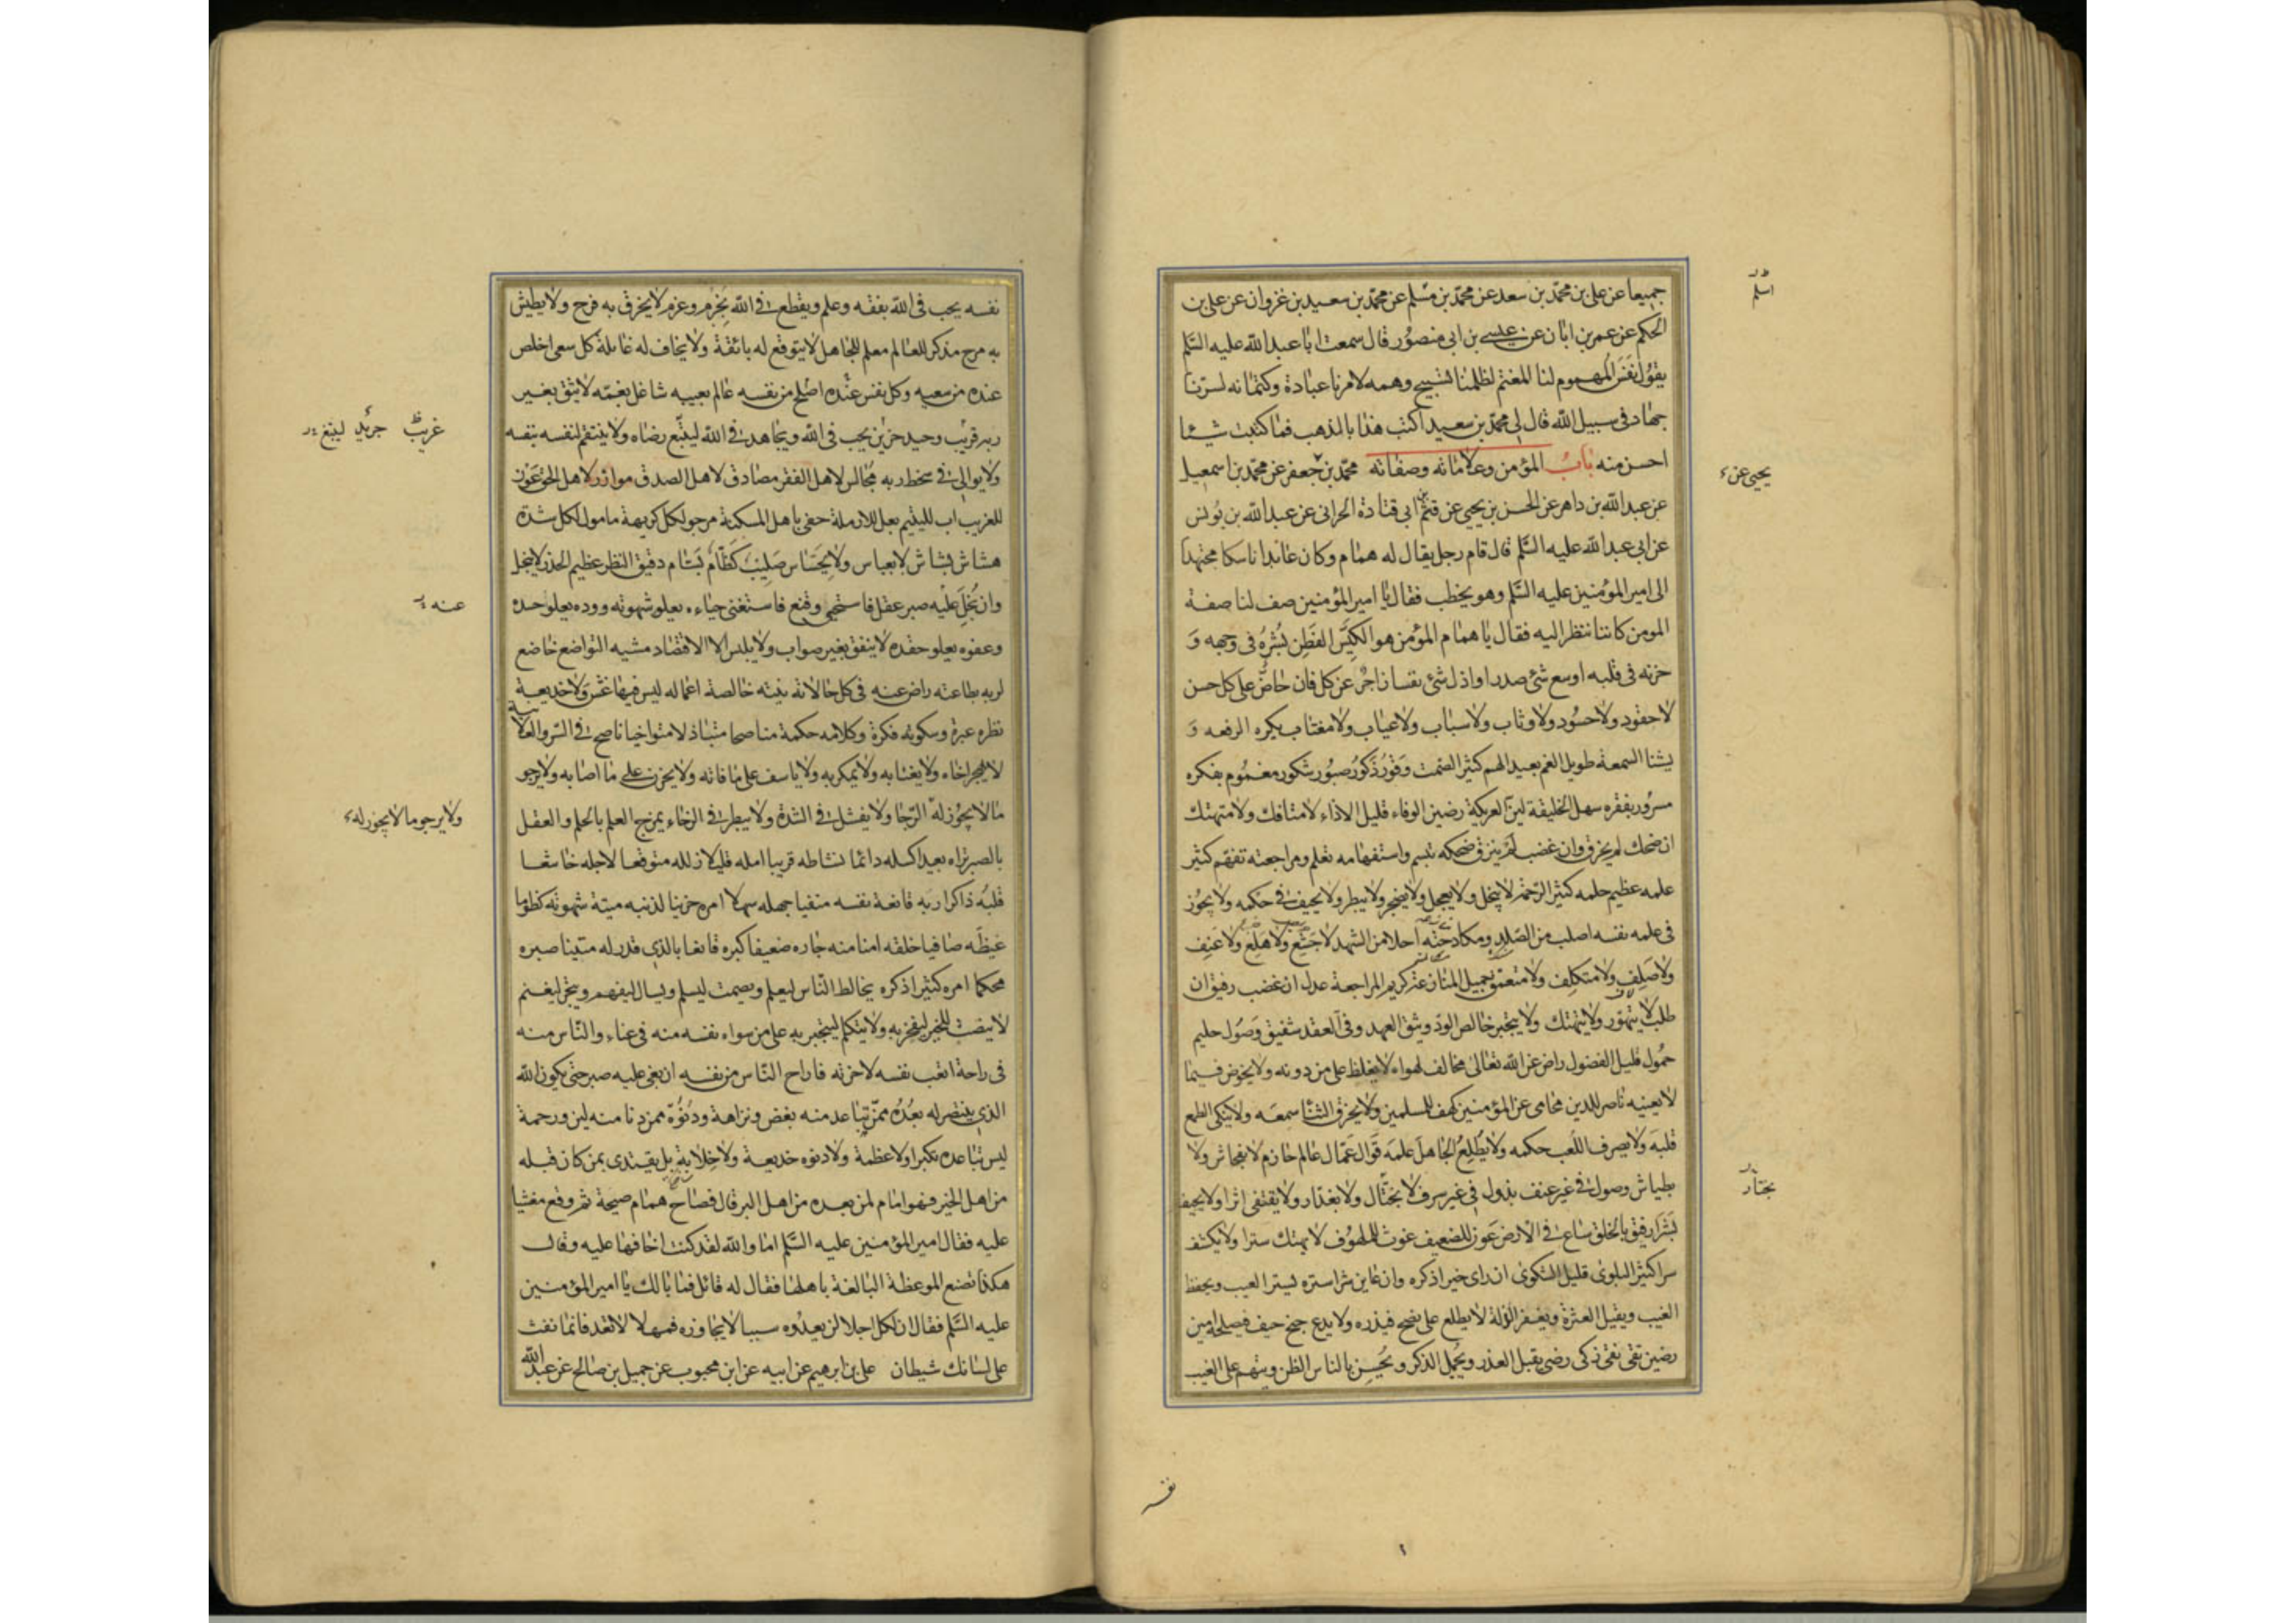 جميعا عن على بن محمّد بن سعد عن محمّد بن مسلم عن محمّد بن سعيد بن غزوان عن على بن
الحكم عن عمر بن ابان عن عيسى بن ابى منصور قال سمعت ابا عبد الله عليه السّلم
يقول نَفَسَ المهموم لنا المغتم لظلمنا تسبيح وهمه لامرنا عبادة وكتمانه لسرّنا
جهاد فى سبيل الله قال لى محمّد بن سعيد اكتب هذا بالذهب فما كتبت شيئا
احسن منه باب المؤمن وعلاماته وصفاته محمّد بن جعفر عن محمّد بن اسمعيل
عن عبد الله بن داهر عن الحسن بن يحيى عن قثم ابى قتادة الحرانى عن عبد الله بن يونس
عن ابى عبد الله عليه السّلم قال قام رجل يقال له همام وكان عابدا ناسكا مجتهدا
الى امير المؤمنين عليه السّلم وهو يخطب فقال يا امير المؤمنين صف لنا صفة
المومن كاننا ننظر اليه فقال يا همام المؤمن هو الكيّس الفَطِن بُشْرُهُ فى وجهه وَ
حزنه فى قلبه اوسع شئ صدرا واذل شئ نفسا زاجرٌ عن كل فان حاضٌ على كل حسن
لا حقود ولا حسود ولا وثاب ولا سباب ولا عياب ولا مغتاب يكره الرفعه وَ
يشنا السمعة طويل الغم بعيد الهم كثير الصمت وَقُور ذَكُور صبُور شكور مغموم بفكره
مسرور بفقره سهل الخليقة لين العريكة رضين الوفاء قليل الاذاء لا متافك ولا متهتك
ان ضحك لم يخرق وان غضب لم ينزق ضحكه تبسم واستفهامه تعلم ومراجعته تفهّم كثير
علمه عظيم حلمه كثير الرّحمة لا يبخل ولا يعجل ولا يضجر ولا يبطر ولا يحيف فى حكمه ولا يجُوز
فى علمه نفسه اصلب من الصَّلد ومكادحته احلا من الشهد لا جَشِع ولا هَلِع ولا عَنِف
ولا صَلِف ولا متكلِف ولا متعمق جميل المنازعة كريم المراجعة عدل ان غضب رفيق ان
طلب لا يتهوّر ولا يتهتك ولا يتجبر خالص الودّ وثيق العهد وفى العقد شفيق وَصُول حليم
حمُول قليل الفضول راض عن الله تعالى مخالف لهواه لا يغلظ على من دونه ولا يخوض فيما
لا يعنيه ناصر للدين محامى عن المؤمنين كهف للمسلمين ولا يخرق الثنا سمعَه ولا ينكى الطمع
قلبَه ولا يصرف اللَعب حكمه ولا يُطْلِعُ الجاهلَ علمَه قَوّال عَمّال عالم حازم لا بفحاش ولا
بطياش وصول فى غير عنف بذول فى غير سرف لا بختّال ولا بغدّار ولا يقتفى اثرا ولا يحيف
بَشَرا رفيق بالخلق ساع فى الارض عَون للضعيف غوث للملهوف لا يهتك سترا ولا يكشف
سرا كثير البلوى قليل الشكوى ان راى خيرا ذكره وان عاين شرا ستره يستر العيب ويحفظ
الغيب ويقيل العثرة ويغفر الزلة لا يطلع على نصح فيذره ولا يدع جنح حيف فيصلحه امين
رضين تقى نقى زكى رضى يقبل العذر ويُجمل الذكر ويُحسِن بالناس الظن ويتهم على الغيب
اسلم
يحيى عن
بختار
نفسه
نفسه يحب فى الله بفقه وعلم ويقطع فى الله بَحزم وعزم لا يخرق به فرح ولا يطيش
به مرح مذكر للعالم معلم للجاهل لا يتوقع له بائقة ولا يخاف له غائلة كل سعى اخلص
عنده من سعيه وكل نفس عنده اصلح من نفسه عالم بعيبه شاغل بغمّه لا يثق بغير
ربه قريب وحيد حزين يحب فى الله ويجاهد فى الله ليتّبع رضاه ولا ينتقم لنفسه بنفسه
ولا يوالى فى سخط ربه مجالس لاهل الفقر مصادق لاهل الصدق موازر لاهل الحق عَون
للغريب اب لليتيم بعل للارملة حفى باهل المسكنة مرجو لكل كريهة مامول لكل شدة
هشاش بشاش لا بعباس ولا بحَسّاس صَلِيب كَظّام بَسّام دقيق النظر عظيم الحذر لا يبخل
وان بُخِلَ عليه صبر عقل فاستحيى وقنع فاستغنى حياءه يعلو شهوته ووده يعلو حسده
وعفوه يعلو حقده لا ينفق بغير صواب ولا يلبس الا الاقتصاد مشيه التواضع خاضع
لربه بطاعته راض عنه فى كل حالاته نيته خالصة اعماله ليس فيها غش ولا خديعة
نظره عبرة وسكوته فكرة وكلامه حكمة مناصحا متباذلا متواخيا ناصح فى السّر والعلانية
لا يهجر اخاه ولا يغتابه ولا يمكر به ولا ياسف على ما فاته ولا يحزن على ما اصابه ولا يرجو
ما لا يجُوز له الرّجا ولا يفشل فى الشدة ولا يبطر فى الرخاء يمزج العلم بالحلم والعقل
بالصبر تراه بعيدا كسله دائما نشاطه قريبا امله قليلا زلله متوقعا لاجله خاشعا
قلبُه ذاكرا ربه قانعة نفسه منفيا جهله سهلا امره حزينا لذنبه ميتة شهوته كظوما
غيظَه صافيا خلقه امنا منه جاره ضعيفا كبره قانعا بالذى قدر له متينا صبره
محكما امره كثيرا ذكره يخالط النّاس ليعلم ويصمت ليسلم ويسال ليفهم ويتجر ليغنم
لا ينصت للخبر ليفخر به ولا يتكلم ليتجبر به على من سواه نفسه منه فى عناء والنّاس منه
فى راحة اتعب نفسه لاخرته فاراح النّاس من نفسه ان بغى عليه صبر حتى يكون الله
الذى ينتصر له بعُدُه ممّن تباعد منه بغض ونزاهة ودنُوّه ممن دنا منه لين ورحمة
ليس تباعده تكبرا ولا عظمة ولا دنوه خديعة ولا خِلابة بل يقتدى بمن كان قبله
من اهل الخير فهو امام لمن بعده من اهل البر قال فصاح همام صيحة ثم وقع مغشيا
عليه فقال امير المؤمنين عليه السّلم اما والله لقد كنت اخافها عليه وقال
هكذا تصنع الموعظة البالغة باهلها فقال له قائل فما بالك يا امير المؤمنين
عليه السّلم فقال ان لكل اجلا لن يعدُوه سببا لا يجاوزه فمهلا لا تعد فانما نفث
على لسانك شيطان على بن ابرهيم عن ابيه عن ابن محبوب عن جميل بن صالح عن عبد الله
غريب
عنه
ولا يرجو ما لا يجوز له